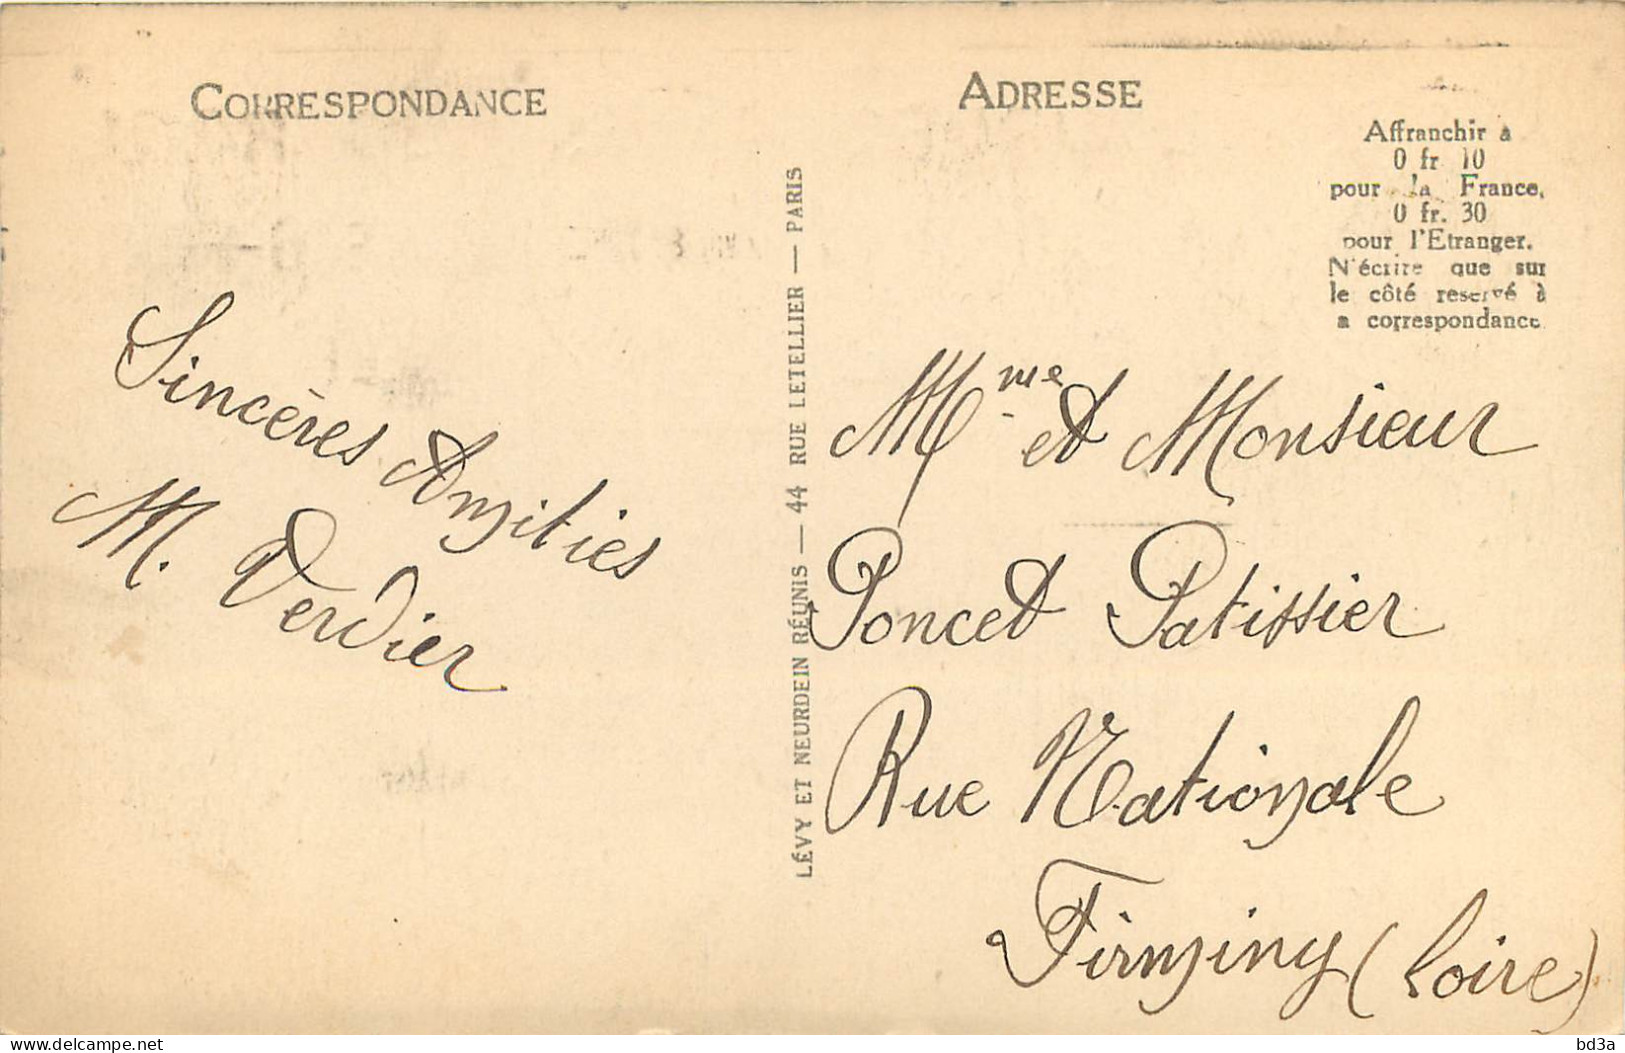 CORRESPONDANCE
Sincères Amitiés
M. Verdier
LÉVY ET NEURDEIN RÉUNIS — 44 RUE LETELLIER — PARIS
ADRESSE
Affranchir à
0 fr 10
pour la France,
0 fr. 30
pour l'Etranger.
N'écrire que sur
le côté reservé à
a correspondance
Mme et Monsieur
Poncet Patissier
Rue Nationale
Firminy (Loire)
delcampe.net
bd3a